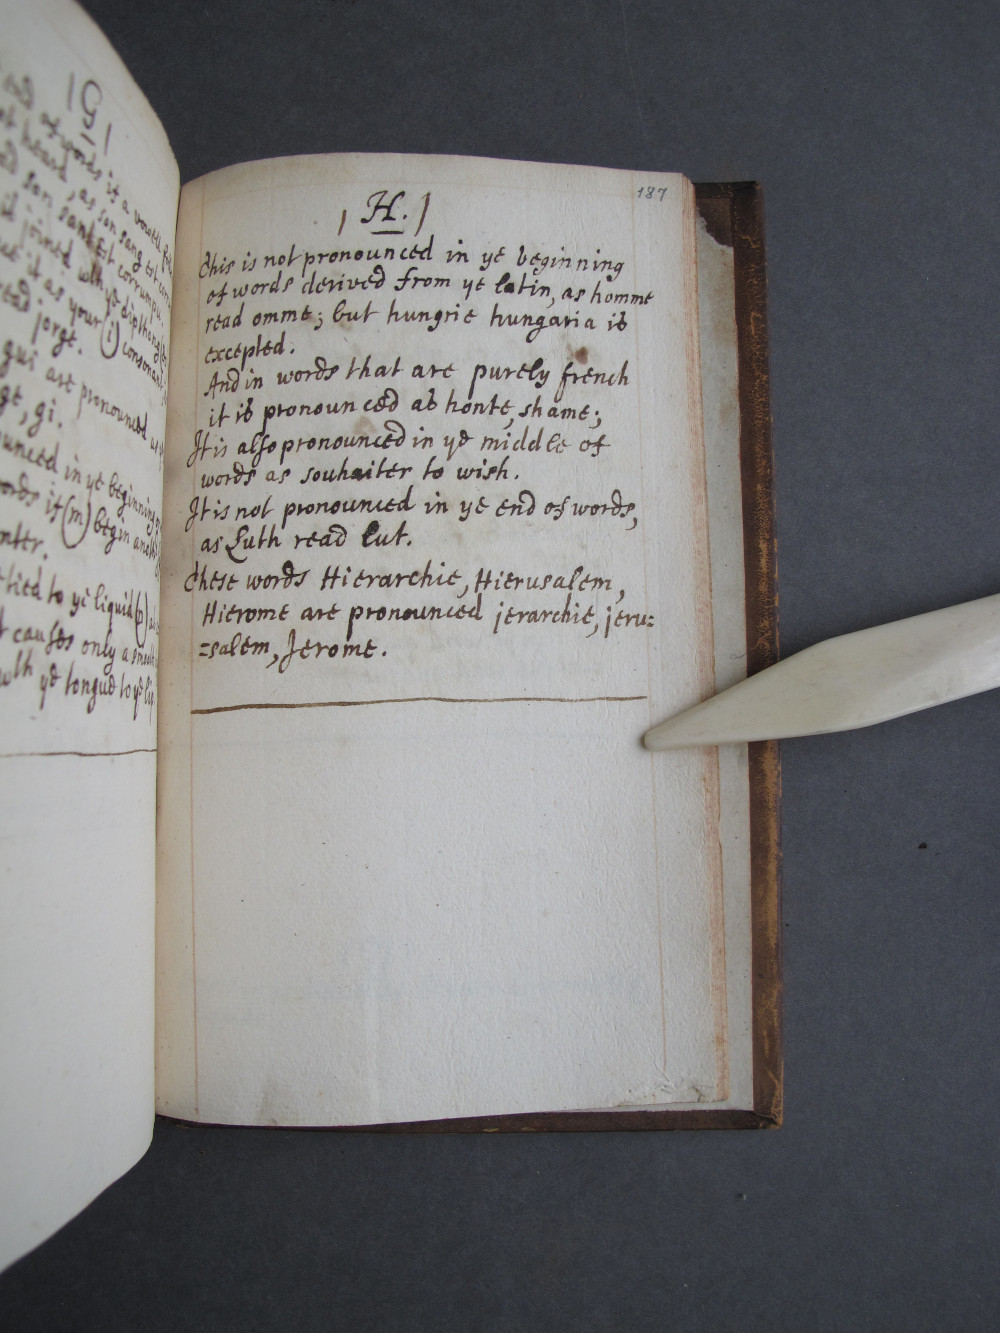 |G|
of words it a vowell
heard, as son sang est
son sant est corrumpu.
joined wth ye dipthong
it as your (i) consonant
read jorge.
gui are pronounced as
ge, gi.
ounced in ye beginning of
words if (m) begin
ye liquid
causes only a
wth ye tongue to ye lip
187
| H. |
This is not pronounced in ye beginning
of words derived from ye latin, as homme
read omme; but hungrie hungaria is
excepted.
And in words that are purely french
it is pronounced as honte, shame;
It is also pronounced in ye middle of
words as souhaiter to wish.
It is not pronounced in ye end of words,
as Luth read Lut.
These words Hierarchie, Hierusalem,
Hierome are pronounced jerarchie, jeru=
=salem, Jerome.